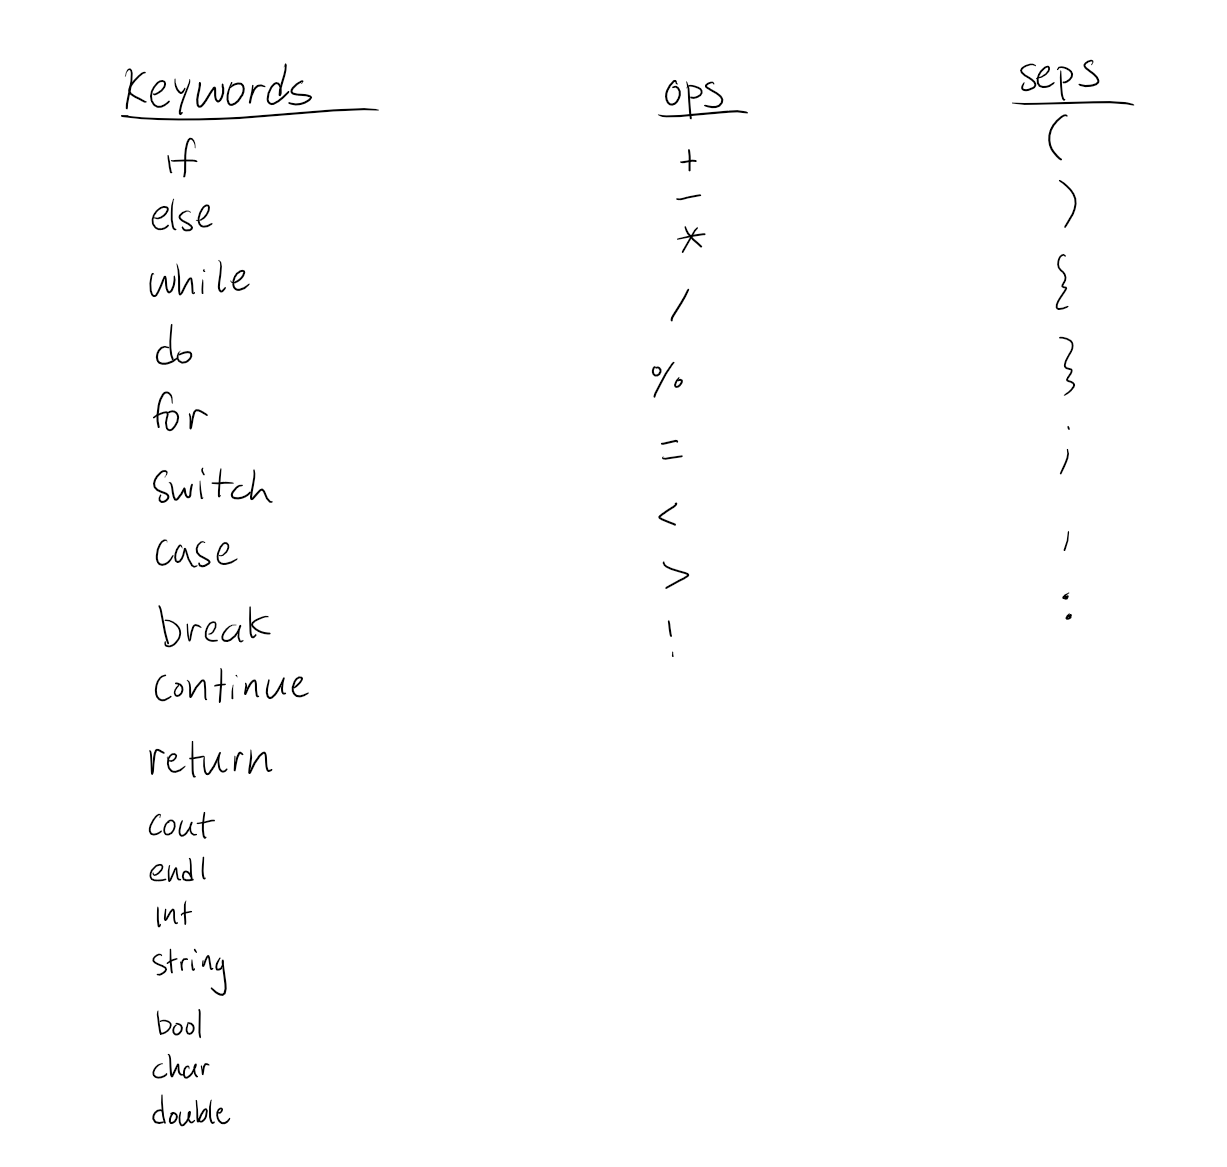 Keywords
if
else
while
do
for
switch
case
break
continue
return
cout
endl
int
string
bool
char
double
ops
+
-
*
/
%
=
<
>
!
seps
(
)
{
}
;
,
: